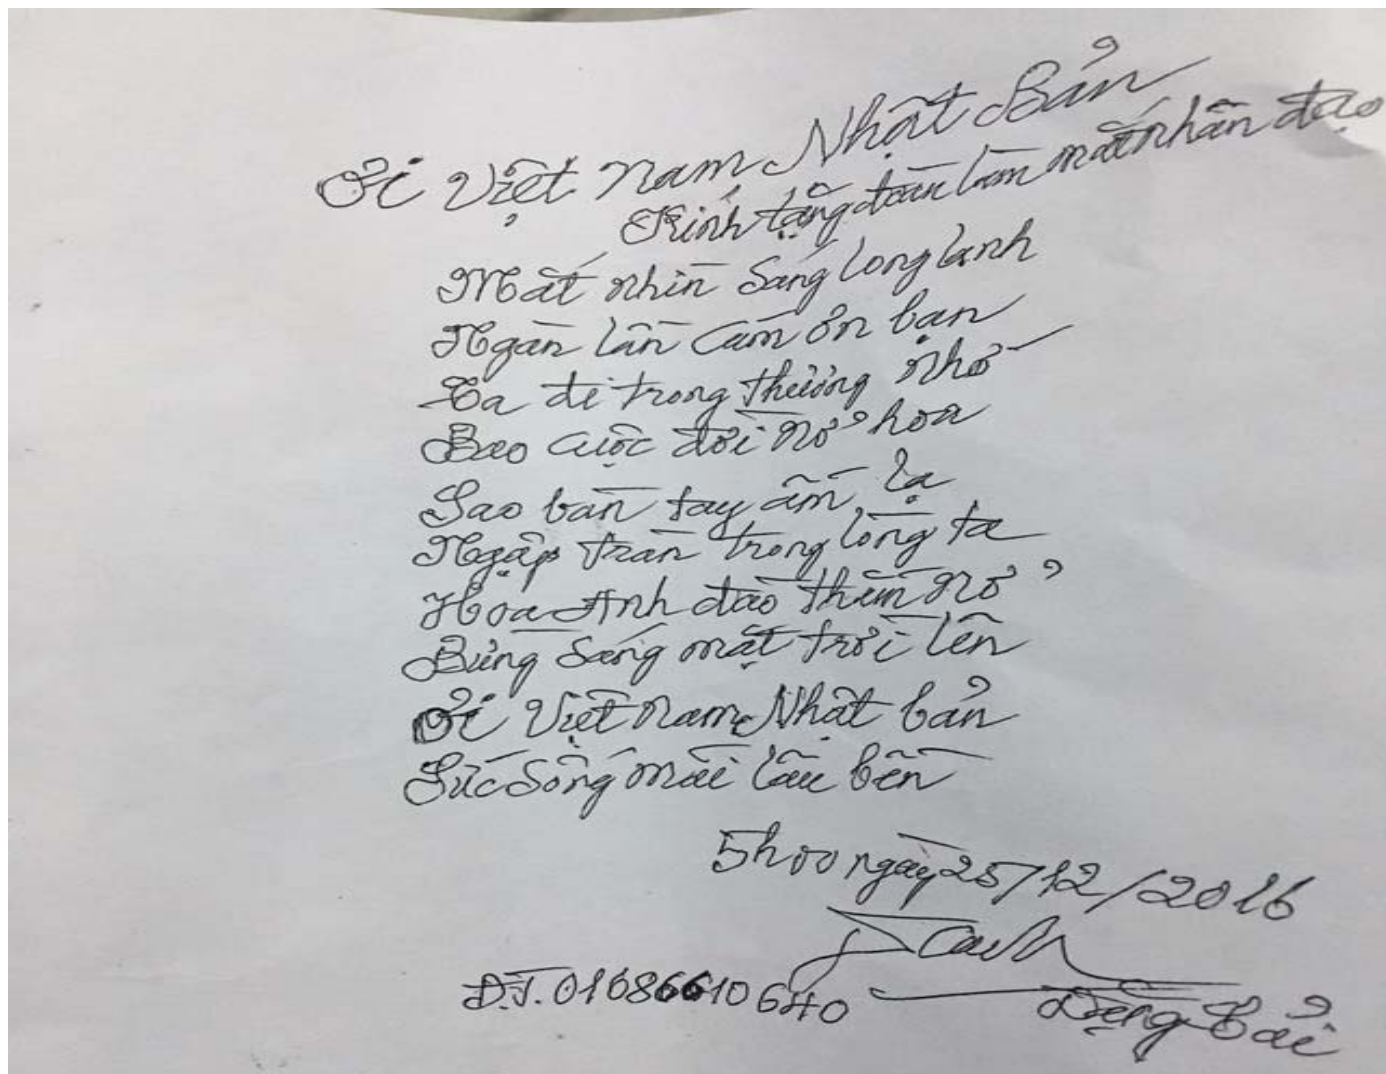 Ơi Việt Nam Nhật Bản
Kính tặng đoàn làm mắt nhân đạo
Mắt nhìn sáng long lanh
Ngàn lần cảm ơn bạn
Ta đi trong thương nhớ
Bao cuộc đời nở hoa
Sao bàn tay ấm lạ
Ngập tràn trong lòng ta
Hoa Anh đào thắm nở
Bừng sáng mặt trời lên
Ơi Việt Nam Nhật bản
Sức sống mãi lâu bền
5h00 ngày 25/12/2016
ĐT. 01686610640
Đặng Tải